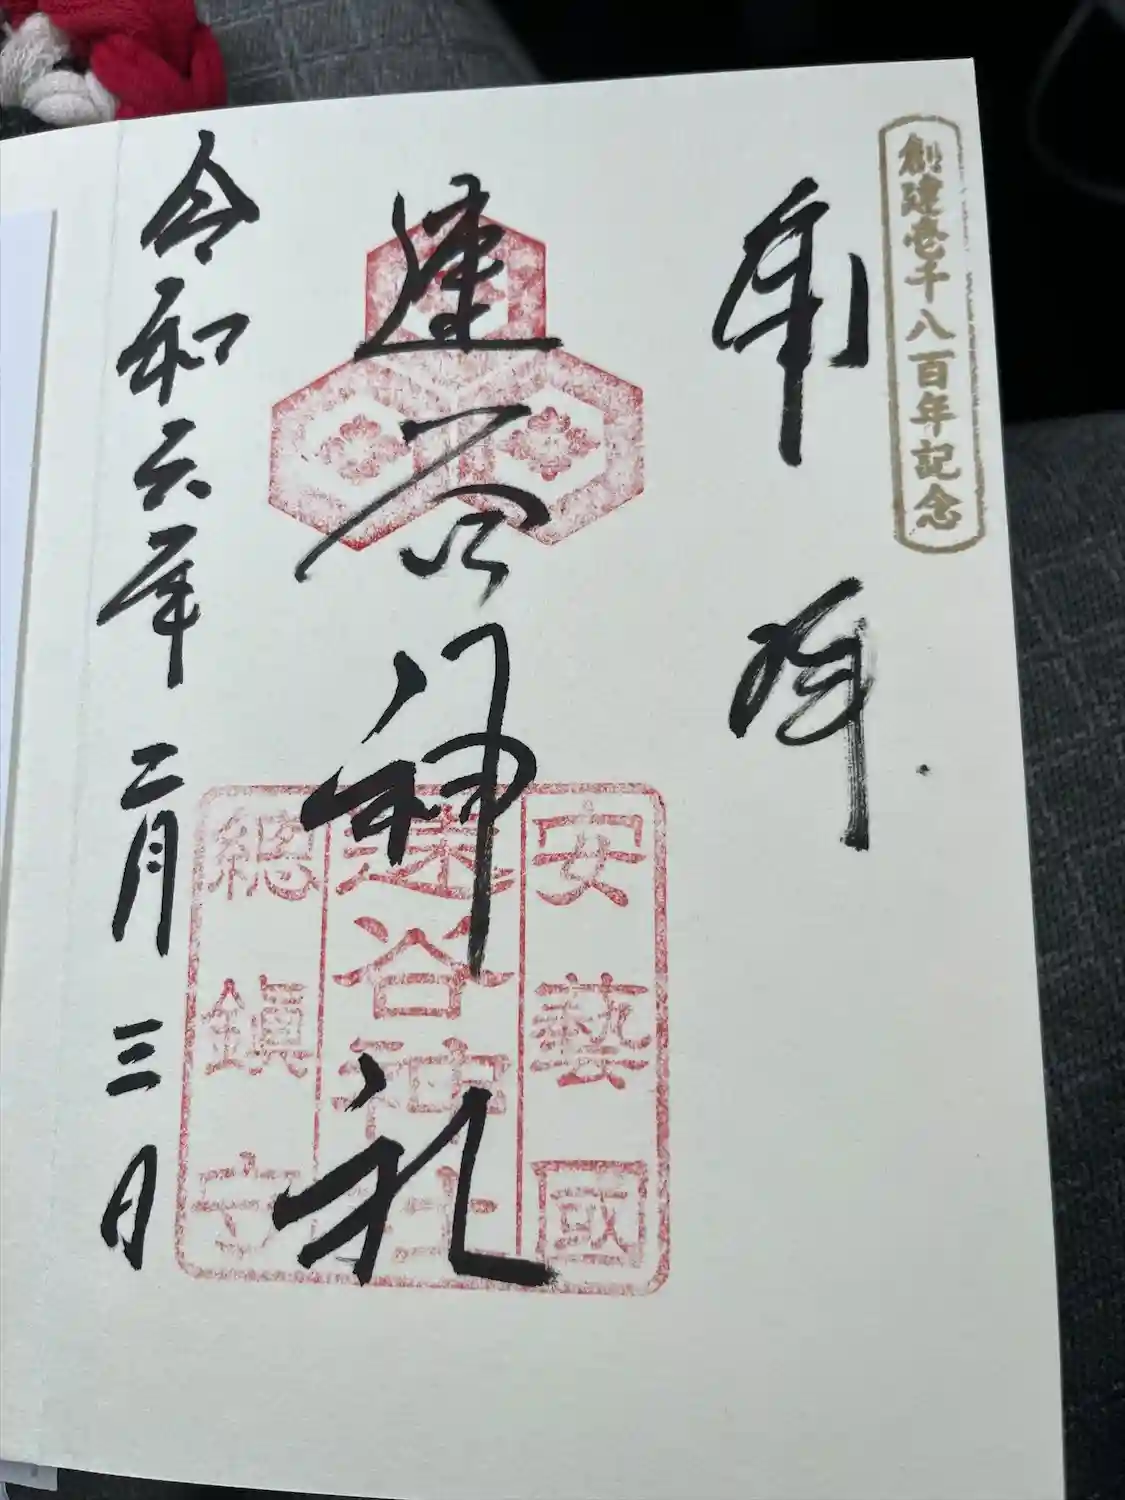 創建壱千八百年記念
奉拝
速谷神社
令和六年二月三日
安藝國
速谷神社
總鎮守